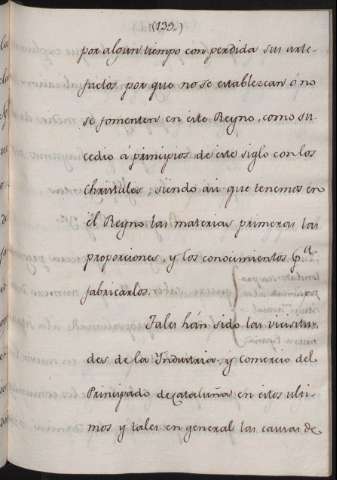 (139.)
por algun tiempo con perdida sus arte-
factos por que no se establezcan ó no
se fomenten en este Reyno, como su-
cedio á principios de este siglo con los
christales; siendo asi que tenemos en
él Reyno las materias primeras las
proporciones, y los conocimientos p.ª
fabricarlos.
Tales hán sido las vicisitu-
des de la Industria, y comercio del
Principado de Cataluña en estos ulti-
mos y tales en general las causas de